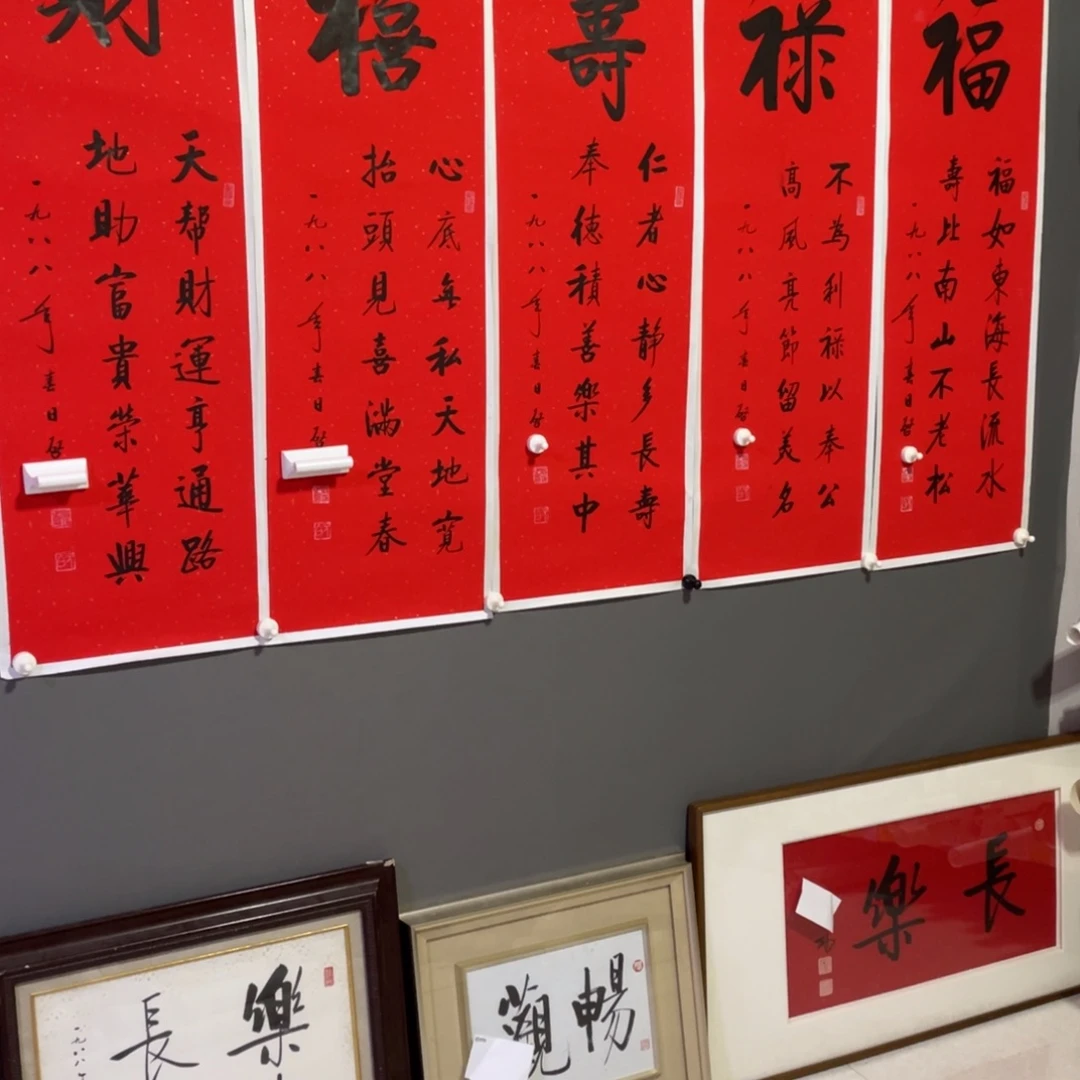 福
福如東海長流水
壽比南山不老松
一九八八年春日
祿
不為利祿以奉公
高風亮節留美名
一九八八年春日
壽
仁者心靜多長壽
奉德積善樂其中
一九八八年春日
禧
心底無私天地寬
抬頭見喜滿堂春
一九八八年春日
財
天帮財運亨通路
地助富貴榮華興
一九八八年春日
長樂
暢觀
樂
長
一九八八年